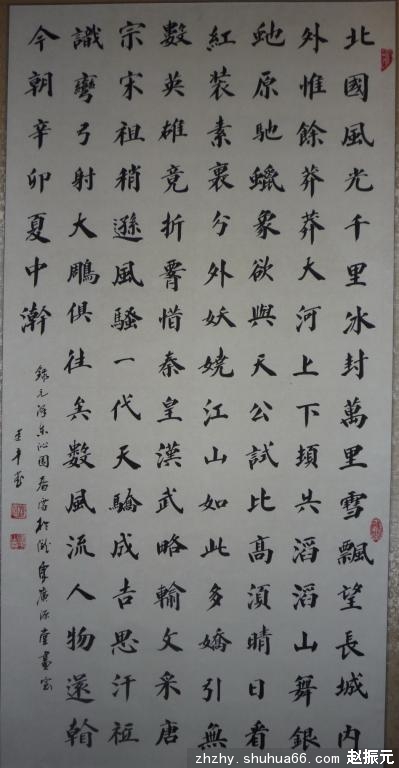 北國風光千里冰封萬里雪飄望長城內
外惟餘莽莽大河上下頓失滔滔山舞銀
虵原馳蠟象欲與天公試比高須晴日看
紅裝素裹分外妖嬈江山如此多嬌引無
數英雄竟折腰惜秦皇漢武略輸文采唐
宗宋祖稍遜風騷一代天驕成吉思汗祗
識彎弓射大鵰俱往矣數風流人物還看
今朝辛卯夏中澣
錄毛澤東沁園春雪於
zhzhy.shuhua66.com 赵振元